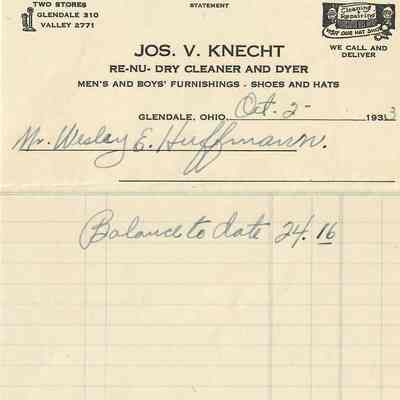 TWO STORES
GLENDALE 310
VALLEY 2771
STATEMENT
Cleaning &
Repairing
VISIT OUR HAT SHOP
WE CALL AND
DELIVER
JOS. V. KNECHT
RE-NU- DRY CLEANER AND DYER
MEN'S AND BOYS' FURNISHINGS - SHOES AND HATS
GLENDALE, OHIO, Oct. 2- 1933
Mr. Wesley E. Huffmann.
Balance to date 24.16